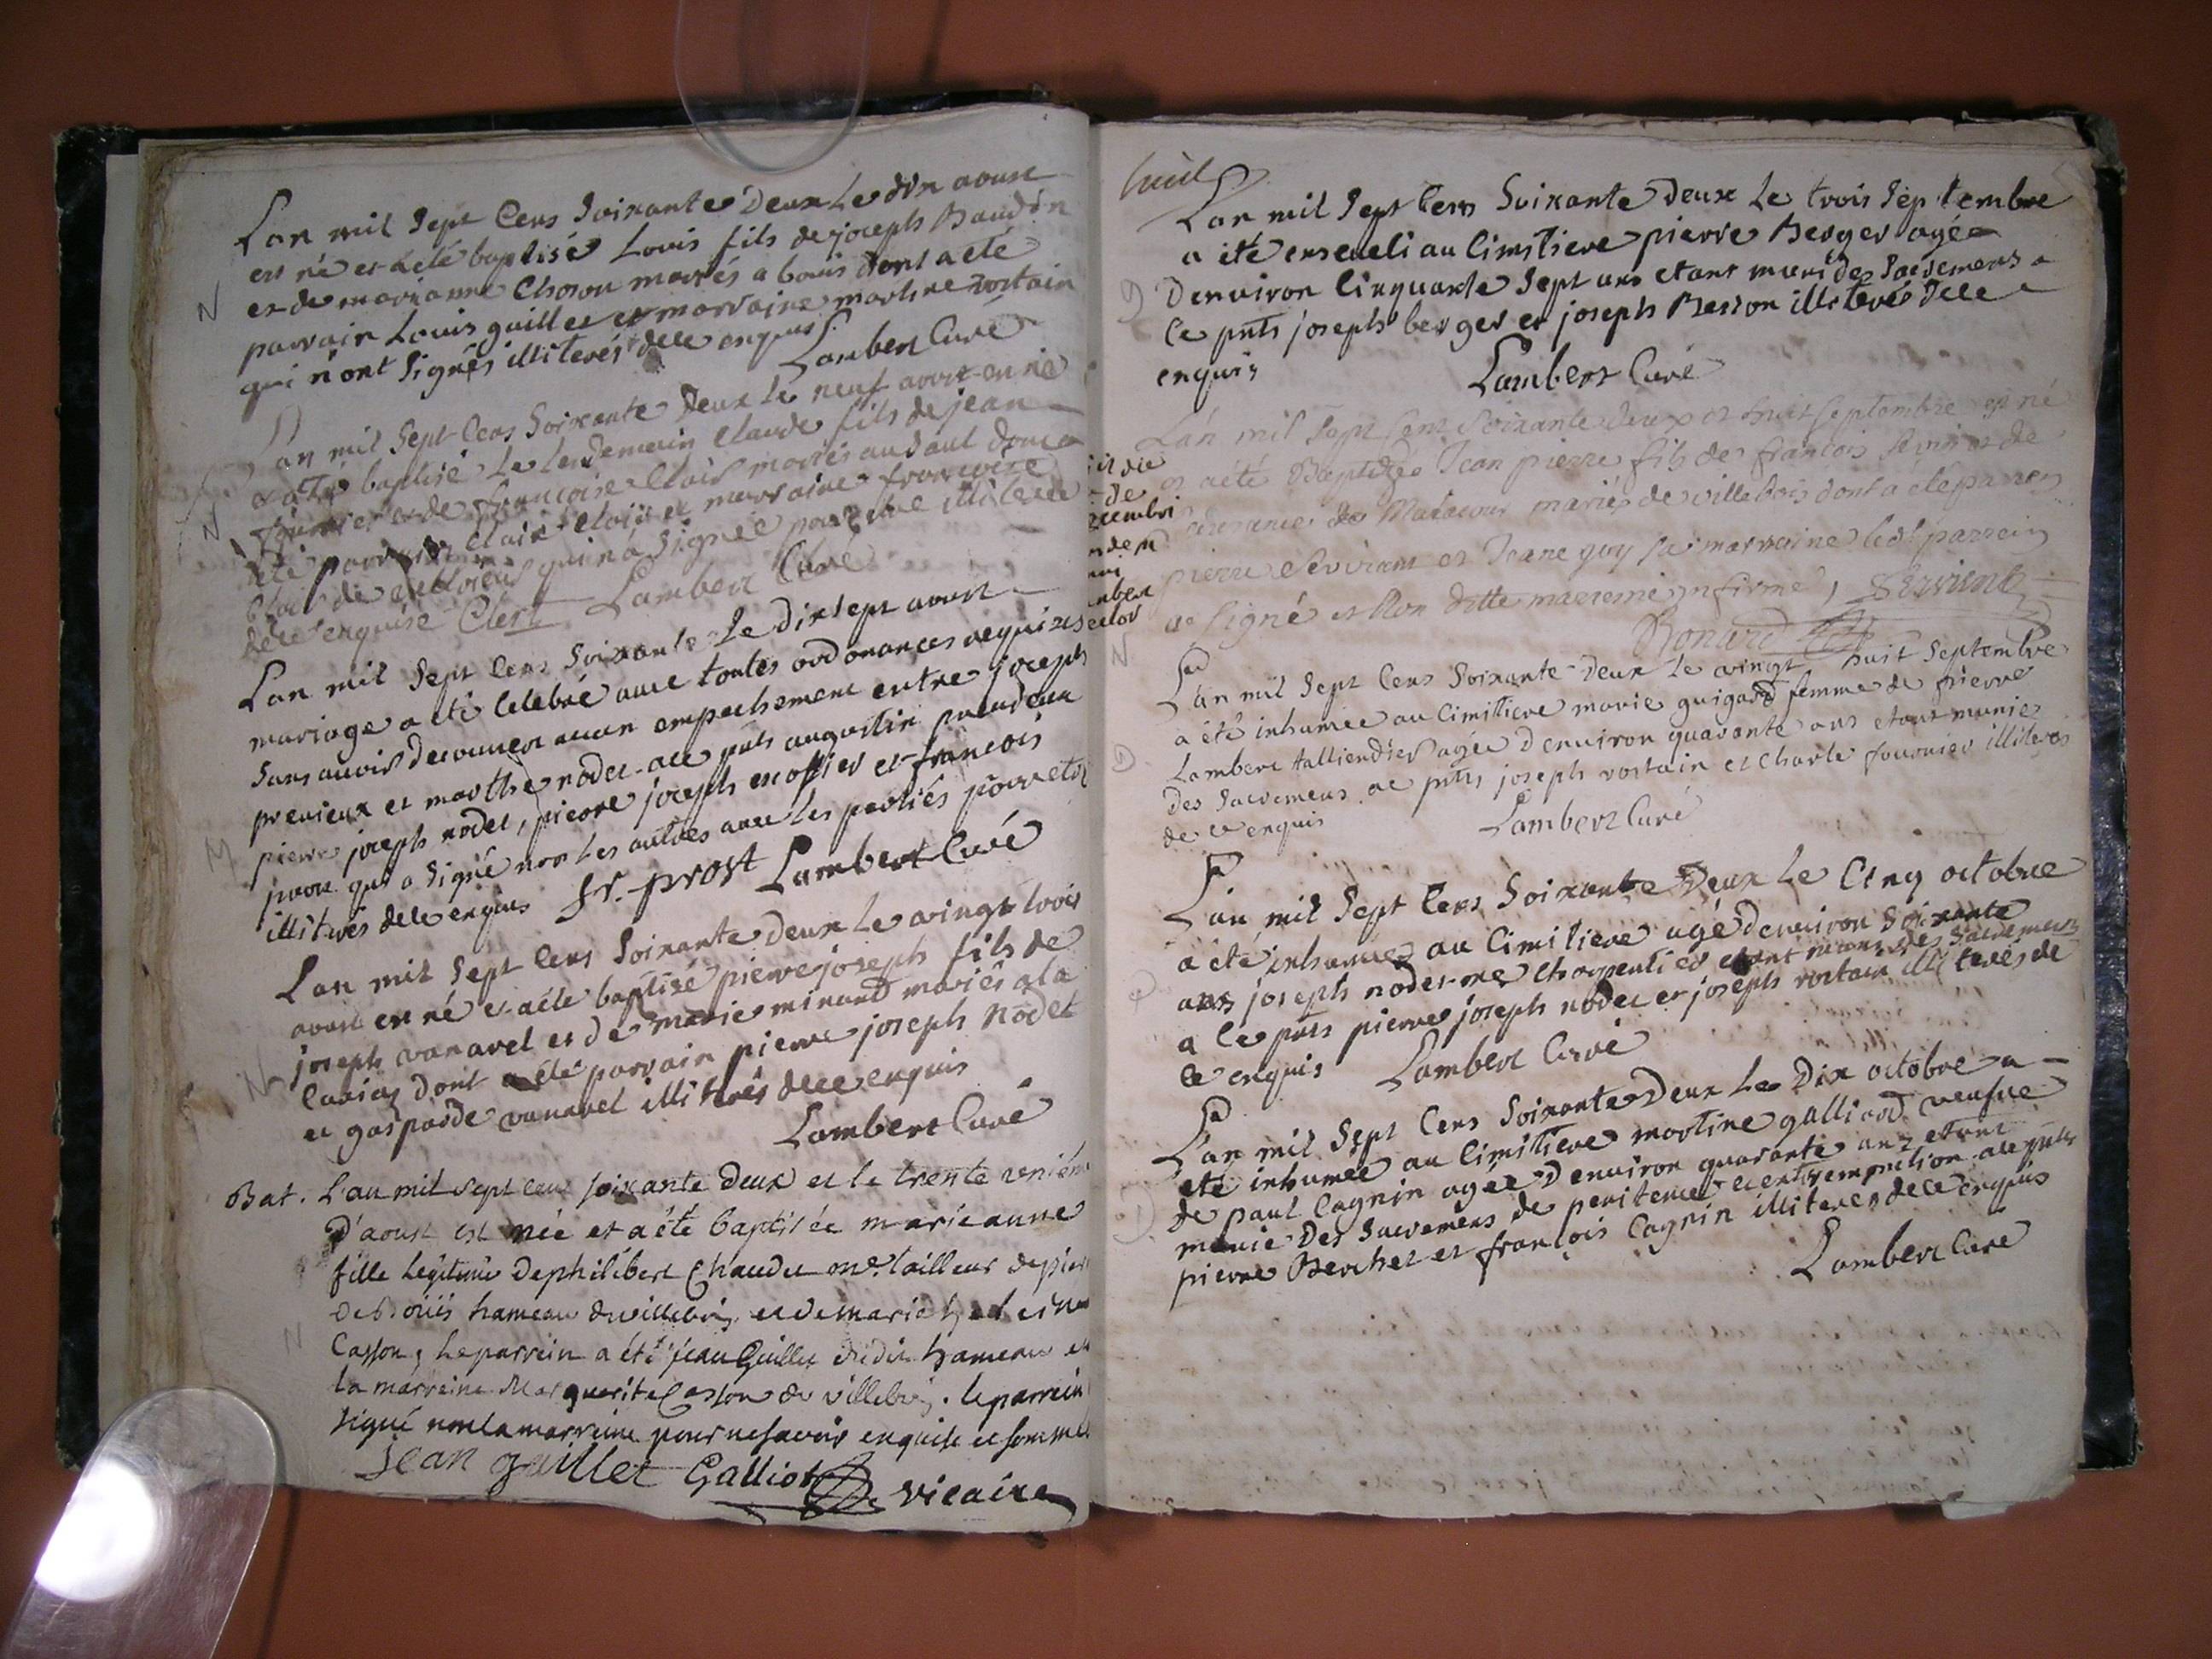 Lan mil Sept Cens Soixante Deux Le dix aoust
est né et a eté baptisé Louis fils de joseph Baudin
et de marianne Choson mariés a bouis dont a eté
parrain Louis guillet et marraine martine rostain
N
qui n'ont Signés illiterés de ce enquis
Lambert Curé
Lan mil Sept Cens Soixante Deux Le neuf aoust est né
a eté baptisé Le Lendemain Claude fils de jean
fournier et de francoise Clair mariés au Saul dont a
N
eté parrain Clair et marraine francoise
Clair de qui n'a Signée pour etre illiteree
de ce enquise Clert Lambert Curé
Lan mil Sept Cens Soixante Le dixsept aoust
mariage a eté Celebré avec toutes ordonances requises
Sans avoir decouvert aucun empechement entre joseph
prenieux et marthe nodet - a ce pnts augustin
pierre joseph nodet, pierre joseph escoffier et francois
M
qui a Signé non Les autres avec Les partiés pour etre
illiterés de ce enquis fr. prost Lambert Curé
Lan mil Sept Cens Soixante Deux Le vingt trois
aoust est né et a eté baptisé pierre joseph fils de
joseph vanavel et de marie minard mariés a la
N
dont a eté parrain pierre joseph Nodet
et gasparde vanavel illiterés de ce enquis
Lambert Curé
Bat. L'an mil sept cens soixante deux et le trente
D'aoust est née et a été baptisée marieanne
fille legitime de philibert Chaudet me. tailleur de
de Bouïs hameau de villebois et de marie
Casson, le parrein a été jean Guillet dudit hameau et
N
la marreine Marguerite Casson de villebois. le parrein
signé non la marreine pour ne savoir enquise et
Jean guillet Galliot vicaire
huit
Lan mil Sept Cens Soixante Deux Le trois Septembre
a eté enseveli au Cimitiere pierre Berger agé
D
D'environ Cinquante Sept ans etant muni des Sacremens a
Ce pnts joseph berger et joseph Besson illiterés de ce
enquis
Lambert Curé
L'an mil Sept Cent Soixante deux et huit Septembre est né
et a eté Baptizé Jean pierre fils de francois et de
mariés de villebois dont a eté parrein
pierre et Jeane guy Sa marraine ledt parrein
a Signé et Non ditte marreine infirme, Servient
Bonard
N
Lan mil Sept Cens Soixante Deux Le vingt huit Septembre
a été inhumee au Cimitiere marie guigard femme de pierre
Lambert talliendier agée D'environ quarante ans etant munie
D
des Sacremens a ce pnts joseph rostain et Charle fournier illiterés
de ce enquis
Lambert Curé
Lan mil Sept Cens Soixante Deux Le Cinq octobre
a eté inhumé au Cimitiere agé D'environ Soixante
ans joseph nodet me Charpentier etant muni des Sacremens
a Ce pnts pierre joseph nodet et joseph rostain illiterés de
ce enquis Lambert Curé
Lan mil Sept Cens Soixante Deux Le Dix octobre a
eté inhumee au Cimitiere martine galliard veufue
de paul Cagnin agée D'environ quarante ans etant
D
munie Des Sacremens de penitence et entremonction a ce pnts
pierre Berchet et francois Cagnin illiteres de ce enquis
Lambert Curé